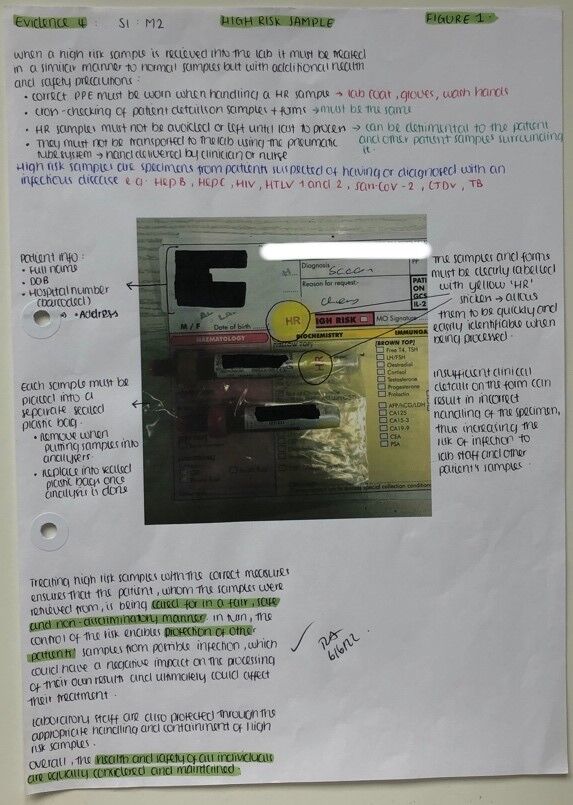 Evidence 4 : S1 : M2 HIGH RISK SAMPLE FIGURE 1.
when a high risk sample is recieved into the lab it must be treated
in a similar manner to normal samples but with additional health
and safety precautions :
• correct PPE must be worn when handling a HR sample → lab coat, gloves, wash hands
• cross-checking of patient details on samples + forms → must be the same
• HR samples must not be avoided or left until last to process → can be detrimental to the patient
and other patient samples surrounding
it.
• They must not be transported to the lab using the pneumatic
tube system → hand delivered by clinician or nurse
High risk samples are specimens from patients suspected of having or diagnosed with an
infectious disease e.g. Hep B, Hep C, HIV, HTLV 1 and 2, Sars-Cov-2, CJDv, TB
Patient info :
• Full name
• DOB
• Hospital number
(barcoded)
• Address
Each sample must be
placed into a
separate sealed
plastic bag.
• Remove when
putting samples into
analysers.
• Replace into sealed
plastic bags once
analysis is done
Diagnosis
Reason for request:-
PATI
ON
GCS
IL-2
M / F Date of birth
HR
IGH RISK
MO Signature
HAEMATOLOGY
BIOCHEMISTRY
IMMUNOA
(YELLOW TOP)
(BROWN TOP)
HR
Free T4, TSH
LH/FSH
Oestradiol
Cortisol
Testosterone
Progesterone
Prolactin
AFP/hCG/LDH
CA125
CA15-3
CA19-9
CEA
PSA
special collection condition
The samples and forms
must be clearly labelled
with yellow 'HR'
sticker → allows
them to be quickly and
easily identifiable when
being processed.
Insufficient clinical
details on the form can
result in incorrect
handling of the specimen,
thus increasing the
risk of infection to
lab staff and other
patients samples.
Treating high risk samples with the correct measures
ensures that the patient, whom the samples were
retrieved from, is being cared for in a fair, safe
and non-discriminatory manner. In turn, the
control of the risk enables protection of other
patients samples from possible infection, which
could have a negative impact on the processing
of their own results and ultimately could affect
their treatment.
Laboratory staff are also protected through the
appropriate handling and containment of high
risk samples.
Overall, the health and safety of all individuals
are equally considered and maintained.
6/6/22